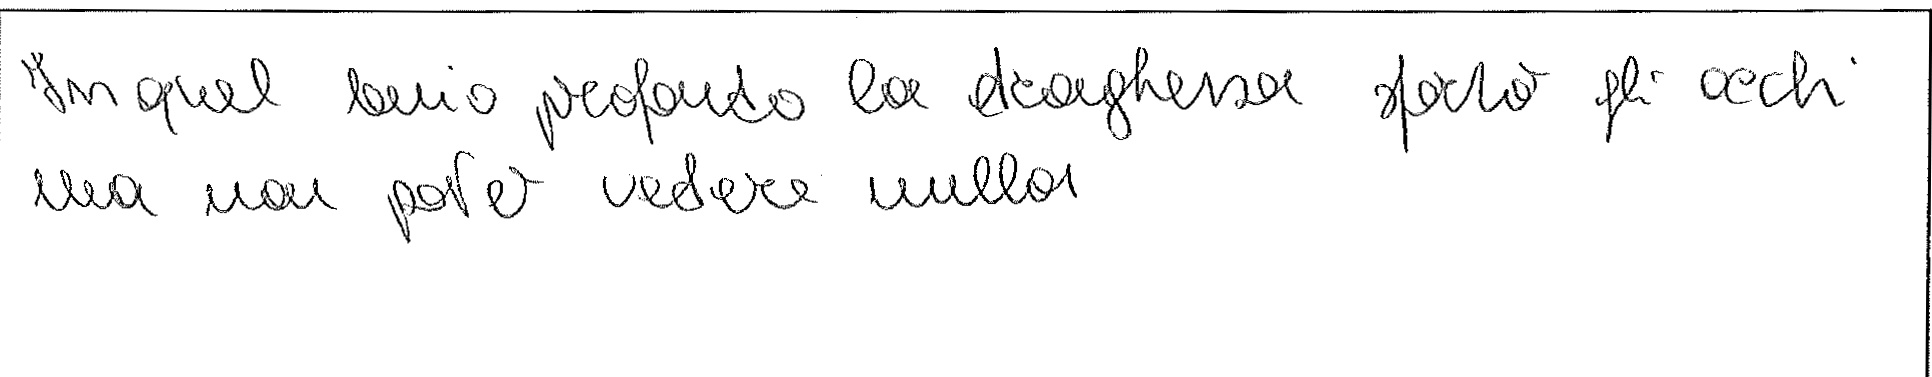 In quel buio profondo la draghessa spalò gli occhi
ma non poter vedere nulla